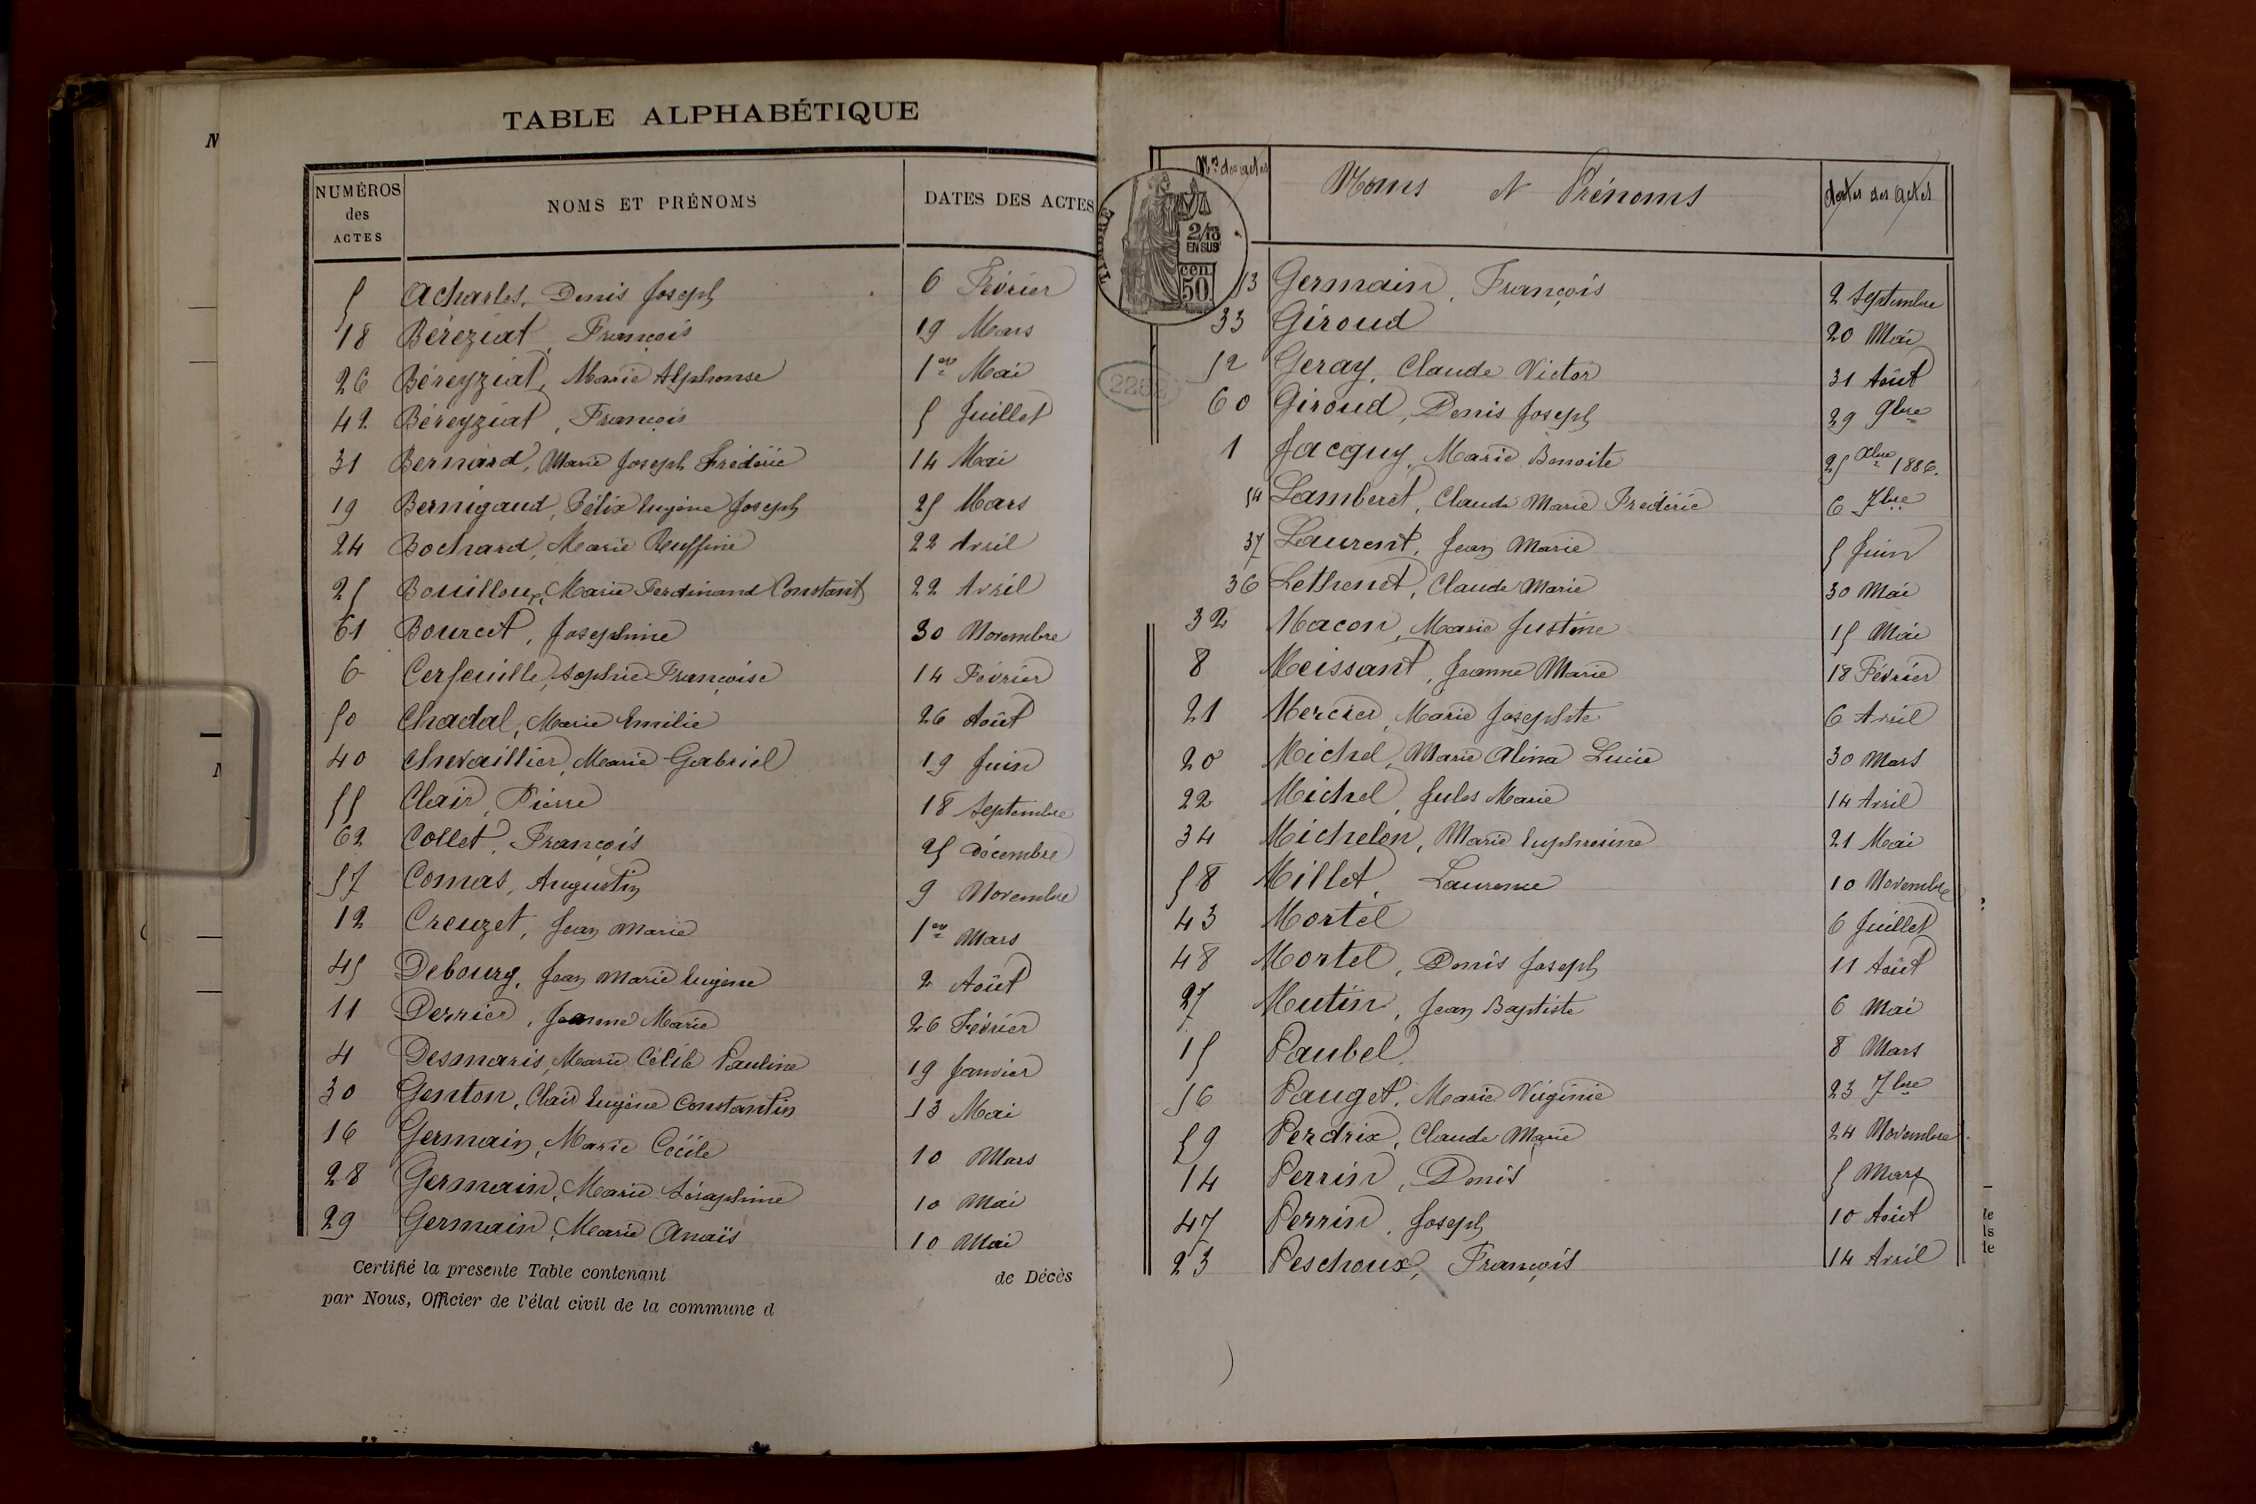 TABLE ALPHABÉTIQUE
NUMÉROS des ACTES NOMS ET PRÉNOMS DATES DES ACTES
5 Acharles, Denis Joseph 6 Février
18 Béréziat, François 19 Mars
26 Béreyziat, Marie Alphonse 1er Mai
42 Béreyziat, François 5 Juillet
31 Bernard, Marie Joseph Frédéric 14 Mai
19 Bernigaud, Félix Eugène Joseph 25 Mars
24 Bochard, Marie Ruffine 22 Avril
25 Bouilloux, Marie Ferdinand Constant 22 Avril
61 Bourcet, Joséphine 30 Novembre
6 Cerfeuille, Sophie Françoise 14 Février
50 Chadal, Marie Emilie 26 Août
40 Chevaillier, Marie Gabriel 19 Juin
55 Clair, Pierre 18 Septembre
62 Collet, François 25 Décembre
57 Comas, Augustin 9 Novembre
12 Creuzet, Jean Marie 1er Mars
45 Debourg, Jean Marie Eugène 2 Août
11 Perrier, Jeanne Marie 26 Février
4 Desmaris, Marie Célile Pauline 19 Janvier
30 Genton, Clair Eugène Constantin 13 Mai
16 Germain, Marie Cécile 10 Mars
28 Germain, Marie Séraphine 10 Mai
29 Germain, Marie Anaïs 10 Mai
Certifié la presente Table contenant de Décès
par Nous, Officier de l'état civil de la commune d
Nos des actes Noms et Prénoms dates des actes
2/10 EN SUS
50 cen
2252
13 Germain, François 2 Septembre
33 Giroud 20 Mai
52 Geray, Claude Victor 31 Août
60 Giroud, Denis Joseph 29 9bre
1 Jacquy, Marie Benoite 25 Xbre 1886.
54 Lamberet, Claude Marie Frédéric 6 7bre
37 Laurent, Jean Marie 5 Juin
36 Lethenet, Claude Marie 30 Mai
32 Macon, Marie Justine 15 Mai
8 Meissant, Jeanne Marie 18 Février
21 Mercier, Marie Josephte 6 Avril
20 Michel, Marie Alina Lucie 30 Mars
22 Michel, Jules Marie 14 Avril
34 Michelon, Marie Euphrosine 21 Mai
58 Millet, Laurence 10 Novembre
43 Mortel 6 Juillet
48 Mortel, Denis Joseph 11 Août
27 Mutin, Jean Baptiste 6 Mai
15 Paubel 8 Mars
56 Pauget, Marie Virginie 23 7bre
59 Perdrix, Claude Marie 24 Novembre
14 Perrin, Denis 5 Mars
47 Perrin, Joseph 10 Août
23 Peschoux, François 14 Avril